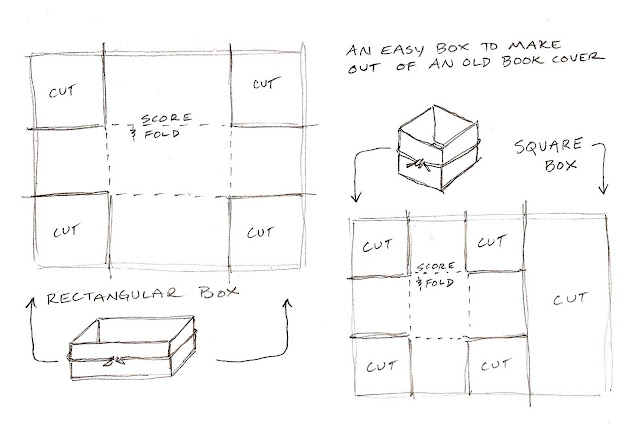 AN EASY BOX TO MAKE
OUT OF AN OLD BOOK COVER
CUT
CUT
SCORE
& FOLD
CUT
CUT
RECTANGULAR BOX
SQUARE
BOX
CUT
CUT
SCORE
& FOLD
CUT
CUT
CUT